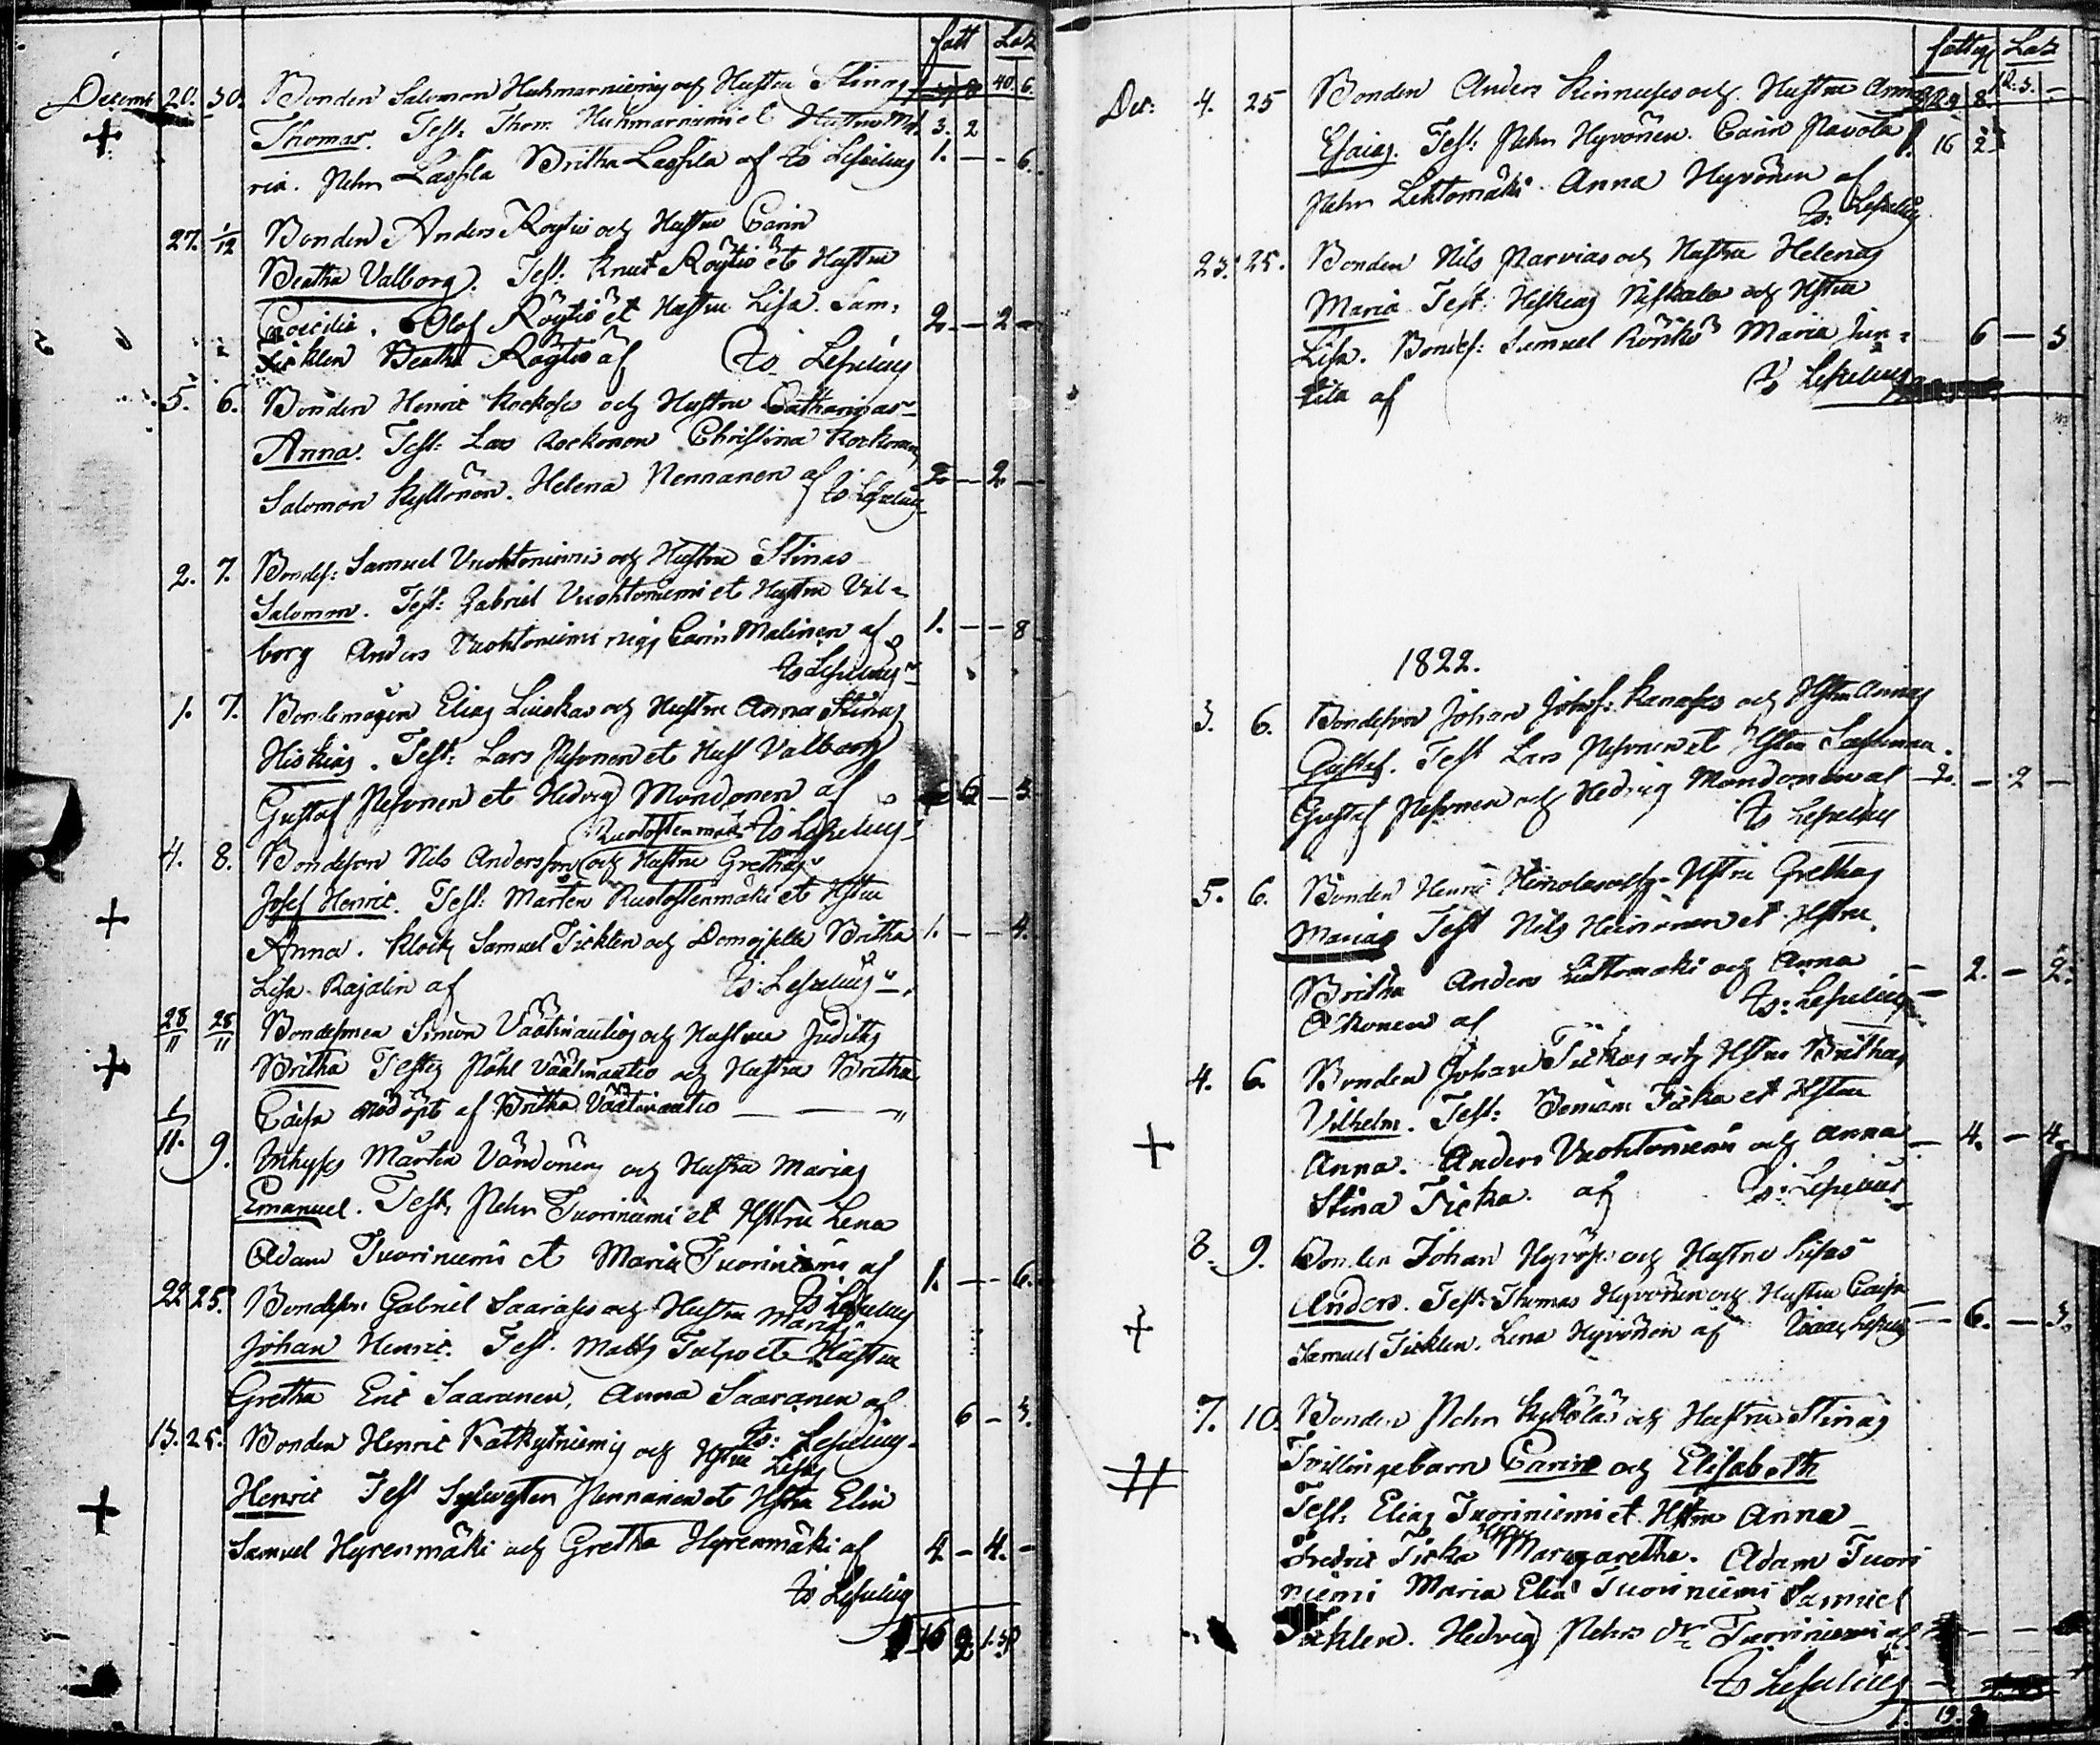 fatt Lat
Decemb 20. 30. Bonden Salomon Huhmarniemis och Hustru Stinas 40. 6.
Thomas. Test: Thom. Huhmarniemi et Hustru Ma- 3. 2
ria. Pehr Lassila Britha Lassila af Is Lesselius 1. — - 6.
27. 1/12 Bonden Anders Röytiö och Hustru Carin
Beatha Valborg. Test: Knut Röytiö et Hustru
Coecilia. Olof Röytiö et Hustru Lisa. Sam. 2. — 2 —
Ticklen Beatha Röytiö af Is Lesselius
5. 6. Bonden Henric Kockoses och Hustru Catharinas
Anna. Test: Lars Kockonen Christina Kockonen
Salomon Kyllönen. Helena Pennanen af Is Lesselius 2. — 2 —
2. 7. Bondes: Samuel Vuohtoniemis och Hustru Stinas
Salomon. Test: Gabriel Vuohtoniemi et Hustru Val-
borg Anders Vuohtoniemi Carin Malinen af 1. — - 8
Is Lesselius
1. 7. Bondemågen Elias Liuskas och Hustru Anna Stinas
Hiskias. Test: Lars Pesonen et Hust Valborg
Gustaf Pesonen et Hedvig Mondonen af 6 — 3.
Is Lesselius
4. 8. Bondeson Nils Andersson Ruotostenmäki och Hustru Grethas
Josef Henric. Test: Mårten Ruotostenmäki et Hstru
Anna. Klock. Samuel Ticklen och Demoiselle Britha 1. — - 4.
Lisa Rajalin af Is: Lesselius
28/11 28/11 Bondesonen Simon Väätinautios och Hustru Judiths
Britha Testes Påhl Väätinautio och Hustru Britha
Caisa nöddöpt af Britha Väätinautio — — "
11. 9. Inhyses Mårten Väridönens och Hustru Marias
Emanuel. Test. Pehr Tuoriniemi et Hstru Lena
Adam Tuoriniemi et Maria Tuoriniemi af 1. — - 6.
Is Lesselius
22 25. Bondeson Gabriel Saarases och Hustru Marias
Johan Henric. Test. Matts Tulpo et Hustru
Gretha Eric Saaranen, Anna Saaranen af 6 — 3.
Is: Lesselius
13. 25. Bonden Henric Katkytniemis och Hstru Lisas
Henric Test Sylvester Pennanen et Hstru Elin
Samuel Hyrenmäki och Gretha Hyrenmäki af 4. — 4. —
Is Lesselius
fattig Lat
Dec: 4. 25 Bonden Anders Kinnuses och Hustru Annas
Esaias. Test: Pehr Hyvönen. Carin Pavola 1. 16 2
Pehr Lehtomäki. Anna Hyvönen af
Is: Lesselius
23. 25. Bonden Nils Parvias och Hustru Helenas
Maria Test: Hiskias Niskala och Hstru
Lisa. Bondes: Samuel Rönkö Maria Jun- 6 — 3
tila af Is Lesselius
1822.
3. 6. Bondeson Johan Johss: Kanases och Hstru Annas
Gustaf. Test Lars Pesonen et Hstru
Gustaf Pesonen och Hedvig Mondonen af 2. — 2 —
Is Lesselius
5. 6. Bonden Henric och Hstru Grethas
Marias Test Nils Heinonen et Hstru
Britha Anders Lehtomäki och Anna — 2. — 2.
Okonen af Is: Lesselius
4. 6. Bonden Johan Tickas och Hstru Brithas
Vilhelm. Test: Beniam Ticka et Hstru
Anna. Anders Vuohtoniemi och Anna — 4. — 4.
Stina Ticka. af Is: Lesselius
8. 9. Bonden Johan Hyvöses och Hustru Lisas
Anders. Test: Thomas Hyvönen och Hustru Caisa
Samuel Ticklen. Lena Hyvönen af Isaac Lesselius — 6. — 3.
7. 10. Bonden Pehr Kyllöläs och Hustru Stinas
Tvillingebarn Carin och Elisabeth
Test: Elias Tuoriniemi et Hstru Anna
Fredric Ticka Hstru Margaretha. Adam Tuori
niemi Maria Elia Tuoriniemi Samuel
Ticklen. Hedvig Pehrs dr Tuoriniemi af
Is Lesselius